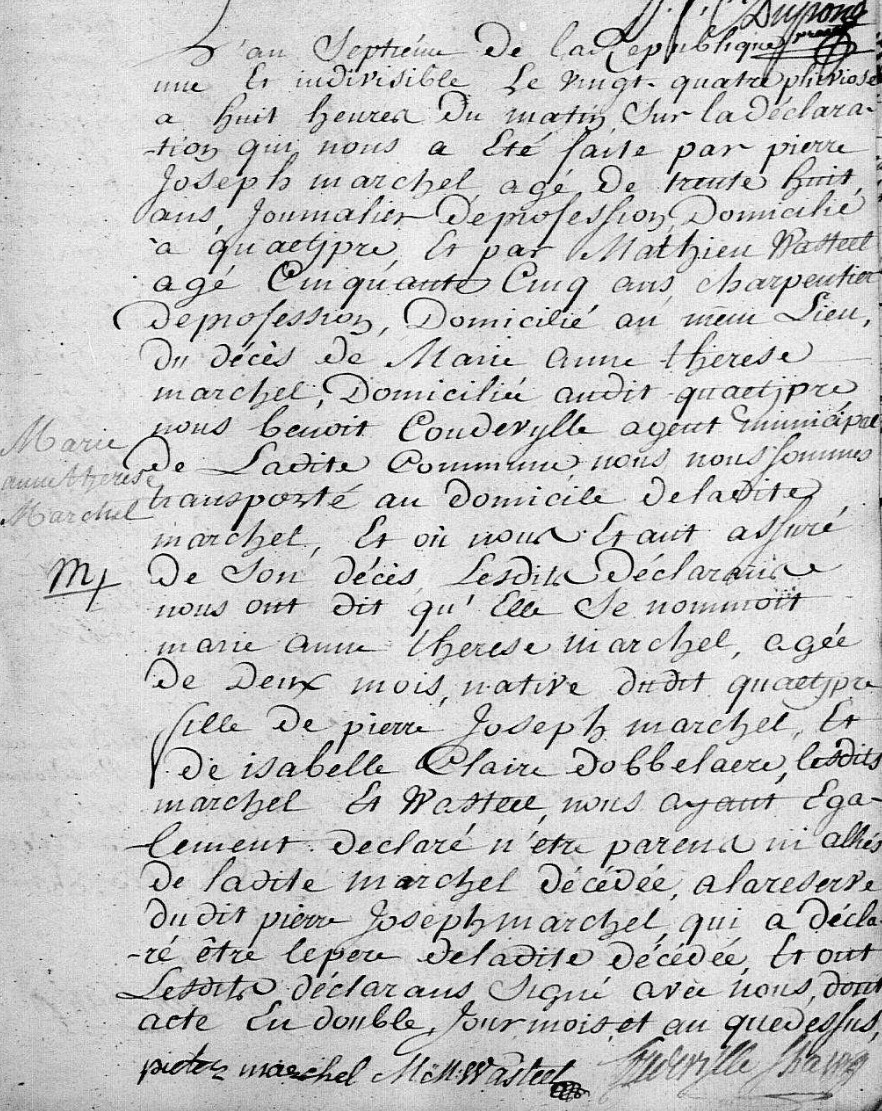 Dupond
L'an Septième de la Republique
une Et indivisible Le vingt-quatre pluviose
a huit heures du matin Sur la déclara-
-tion qui nous a Eté faite par pierre
Joseph marchel agé de trente huit
ans, Journalier de profession, Domicilié
à quaetipre, Et par Mathieu Wasteel
agé Cinquante Cinq ans charpentier
de profession, Domicilié au même Lieu,
du décès de Marie anne therese
marchel, Domiciliée audit quaetipre
nous benoit Coudevylle agent municipal
de Ladite Commune nous nous sommes
transporté au domicile de ladite
marchel, Et où nous Etant assuré
de Son décès, Lesdits Déclarans
nous ont dit qu'Elle Se nommoit
marie anne therese marchel, agée
de Deux mois, native dudit quaetipre
fille de pierre Joseph marchel, Et
de isabelle Claire dobbelaere, lesdits
marchel Et Wasteel, nous ayant Ega-
-lement declaré n'etre parens ni alliés
de ladite marchel décédée, a la reserve
dudit pierre Joseph marchel, qui a décla-
-ré être le pere de ladite décédée, Et ont
Lesdits déclarans Signé avec nous, dont
acte En double, Jour mois et an que dessus,
pieter marchel M:M:Wasteel Coudevylle
Marie
anne therese
Marchel
M